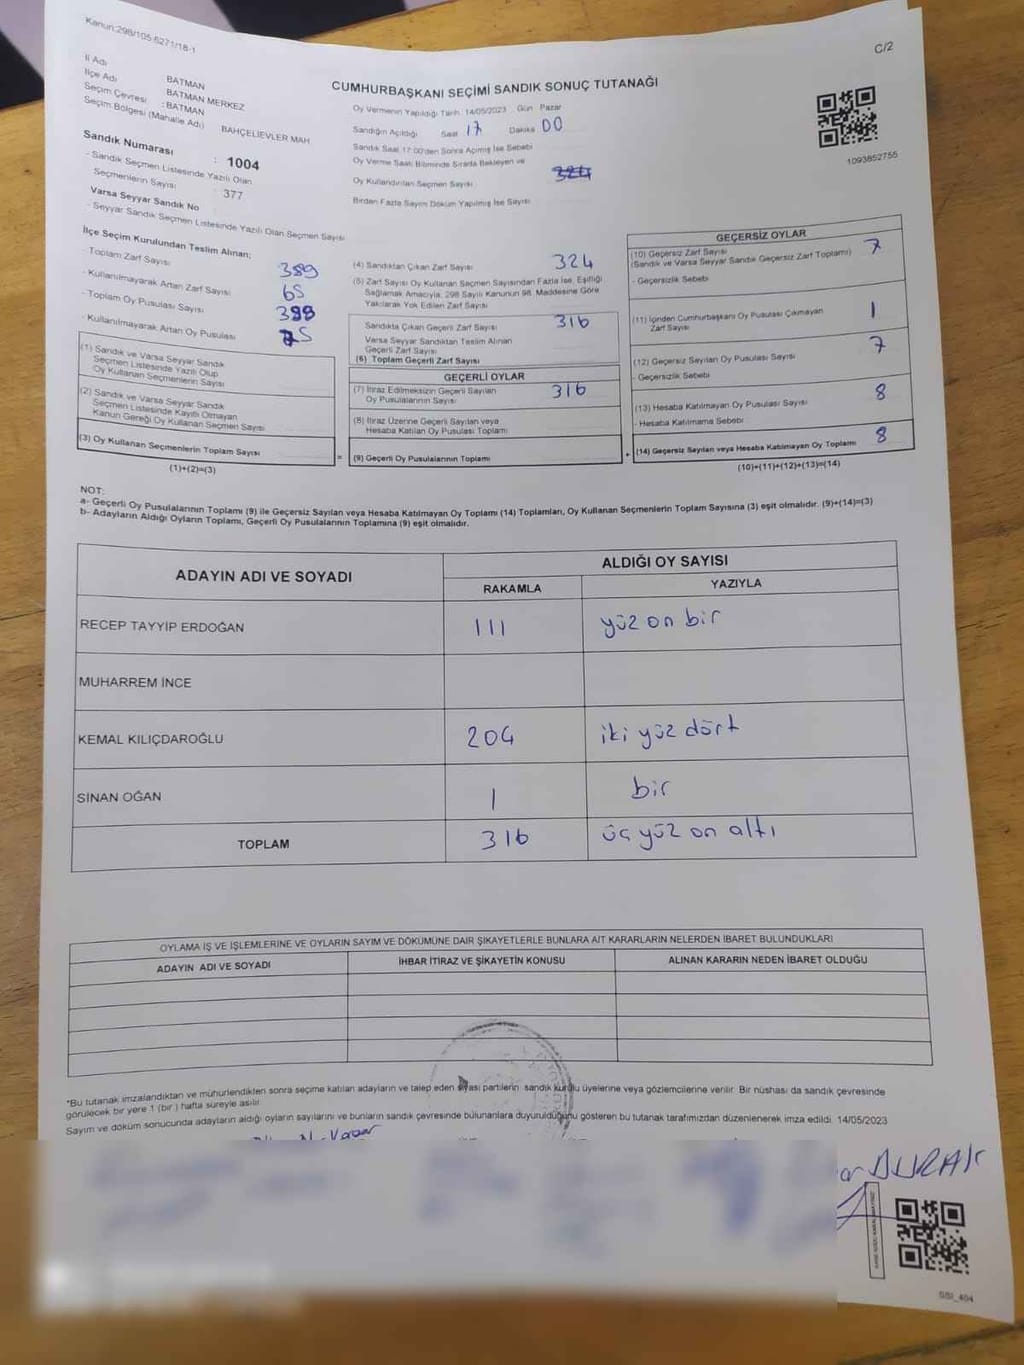 Kanun:298/105.6271/18-1
C/2
İl Adı BATMAN
İlçe Adı BATMAN MERKEZ
Seçim Çevresi : BATMAN
Seçim Bölgesi (Mahalle Adı) BAHÇELİEVLER MAH
Sandık Numarası : 1004
- Sandık Seçmen Listesinde Yazılı Olan
Seçmenlerin Sayısı : 377
Varsa Seyyar Sandık No
- Seyyar Sandık Seçmen Listesinde Yazılı Olan Seçmen Sayısı
CUMHURBAŞKANI SEÇİMİ SANDIK SONUÇ TUTANAĞI
Oy Vermenin Yapıldığı Tarih 14/05/2023 Gün Pazar
Sandığın Açıldığı Saat 17 Dakika 00
Sandık Saat 17:00'den Sonra Açılmış İse Sebebi
Oy Verme Saati Bitiminde Sırada Bekleyen ve
Oy Kullandırılan Seçmen Sayısı 324
Birden Fazla Sayım Döküm Yapılmış İse Sayısı
1093852755
İlçe Seçim Kurulundan Teslim Alınan;
- Toplam Zarf Sayısı 389
- Kullanılmayarak Artan Zarf Sayısı 65
- Toplam Oy Pusulası Sayısı 399
- Kullanılmayarak Artan Oy Pusulası 75
(1) Sandık ve Varsa Seyyar Sandık
Seçmen Listesinde Yazılı Olup
Oy Kullanan Seçmenlerin Sayısı
(2) Sandık ve Varsa Seyyar Sandık
Seçmen Listesinde Kayıtlı Olmayan
Kanun Gereği Oy Kullanan Seçmen Sayısı
(3) Oy Kullanan Seçmenlerin Toplam Sayısı
(1)+(2)=(3)
(4) Sandıktan Çıkan Zarf Sayısı 324
(5) Zarf Sayısı Oy Kullanan Seçmen Sayısından Fazla İse, Eşitliği
Sağlamak Amacıyla, 298 Sayılı Kanunun 98. Maddesine Göre
Yakılarak Yok Edilen Zarf Sayısı
Sandıkta Çıkan Geçerli Zarf Sayısı 316
Varsa Seyyar Sandıktan Teslim Alınan
Geçerli Zarf Sayısı
(6) Toplam Geçerli Zarf Sayısı
GEÇERLİ OYLAR
(7) İtiraz Edilmeksizin Geçerli Sayılan
Oy Pusulalarının Sayısı 316
(8) İtiraz Üzerine Geçerli Sayılan veya
Hesaba Katılan Oy Pusulası Toplamı
= (9) Geçerli Oy Pusulalarının Toplamı +
GEÇERSİZ OYLAR
(10) Geçersiz Zarf Sayısı 7
(Sandık ve Varsa Seyyar Sandık Geçersiz Zarf Toplamı)
- Geçersizlik Sebebi
(11) İçinden Cumhurbaşkanı Oy Pusulası Çıkmayan
Zarf Sayısı 1
(12) Geçersiz Sayılan Oy Pusulası Sayısı 7
- Geçersizlik Sebebi
(13) Hesaba Katılmayan Oy Pusulası Sayısı 8
- Hesaba Katılmama Sebebi
(14) Geçersiz Sayılan veya Hesaba Katılmayan Oy Toplamı 8
(10)+(11)+(12)+(13)=(14)
NOT:
a- Geçerli Oy Pusulalarının Toplamı (9) ile Geçersiz Sayılan veya Hesaba Katılmayan Oy Toplamı (14) Toplamları, Oy Kullanan Seçmenlerin Toplam Sayısına (3) eşit olmalıdır. (9)+(14)=(3)
b- Adayların Aldığı Oyların Toplamı, Geçerli Oy Pusulalarının Toplamına (9) eşit olmalıdır.
ADAYIN ADI VE SOYADI ALDIĞI OY SAYISI
RAKAMLA YAZIYLA
RECEP TAYYİP ERDOĞAN 111 yüz on bir
MUHARREM İNCE
KEMAL KILIÇDAROĞLU 204 iki yüz dört
SİNAN OĞAN 1 bir
TOPLAM 316 üç yüz on altı
OYLAMA İŞ VE İŞLEMLERİNE VE OYLARIN SAYIM VE DÖKÜMÜNE DAİR ŞİKAYETLERLE BUNLARA AİT KARARLARIN NELERDEN İBARET BULUNDUKLARI
ADAYIN ADI VE SOYADI İHBAR İTİRAZ VE ŞİKAYETİN KONUSU ALINAN KARARIN NEDEN İBARET OLDUĞU
*Bu tutanak imzalandıktan ve mühürlendikten sonra seçime katılan adayların ve talep eden siyasi partilerin sandık kurulu üyelerine veya gözlemcilerine verilir. Bir nüshası da sandık çevresinde
görülecek bir yere 1 (bir) hafta süreyle asılır.
Sayım ve döküm sonucunda adayların aldığı oyların sayılarını ve bunların sandık çevresinde bulunanlara duyurulduğunu gösteren bu tutanak tarafımızdan düzenlenerek imza edildi. 14/05/2023
BURAK
SSI_404